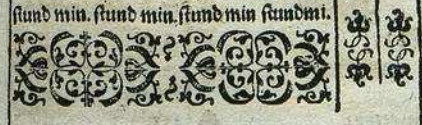 stund min. stund min. stund min stundmi.